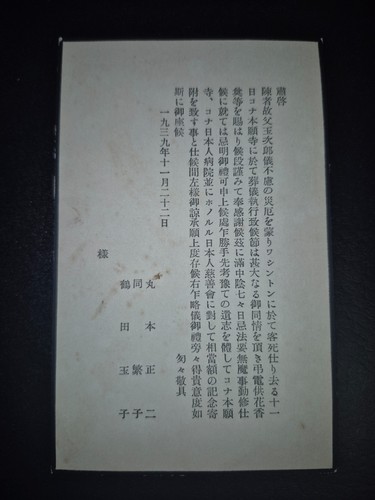 肅啓
陳者故父玉次郎儀不慮の災厄を蒙りワシントンに於て客死仕り去る十一
日コナ本願寺に於て葬儀執行致候節は甚大なる御同情を頂き弔電供花香
奠等を賜はり候段謹みて奉感謝候茲に滿中陰七々日忌法要無魔事勤修仕
候に就ては忌明御禮可申上候處乍勝手先考豫ての遺志を體してコナ本願
寺、コナ日本人病院並にホノルル日本人慈善會に對して相當額の記念寄
附を致す事と仕候間左樣御諒承願上度存候右乍略儀御禮旁々得貴意度如
斯に御座候
匆々敬具
一九三九年十一月二十二日
丸本正二
同繁子
鶴田玉子
樣